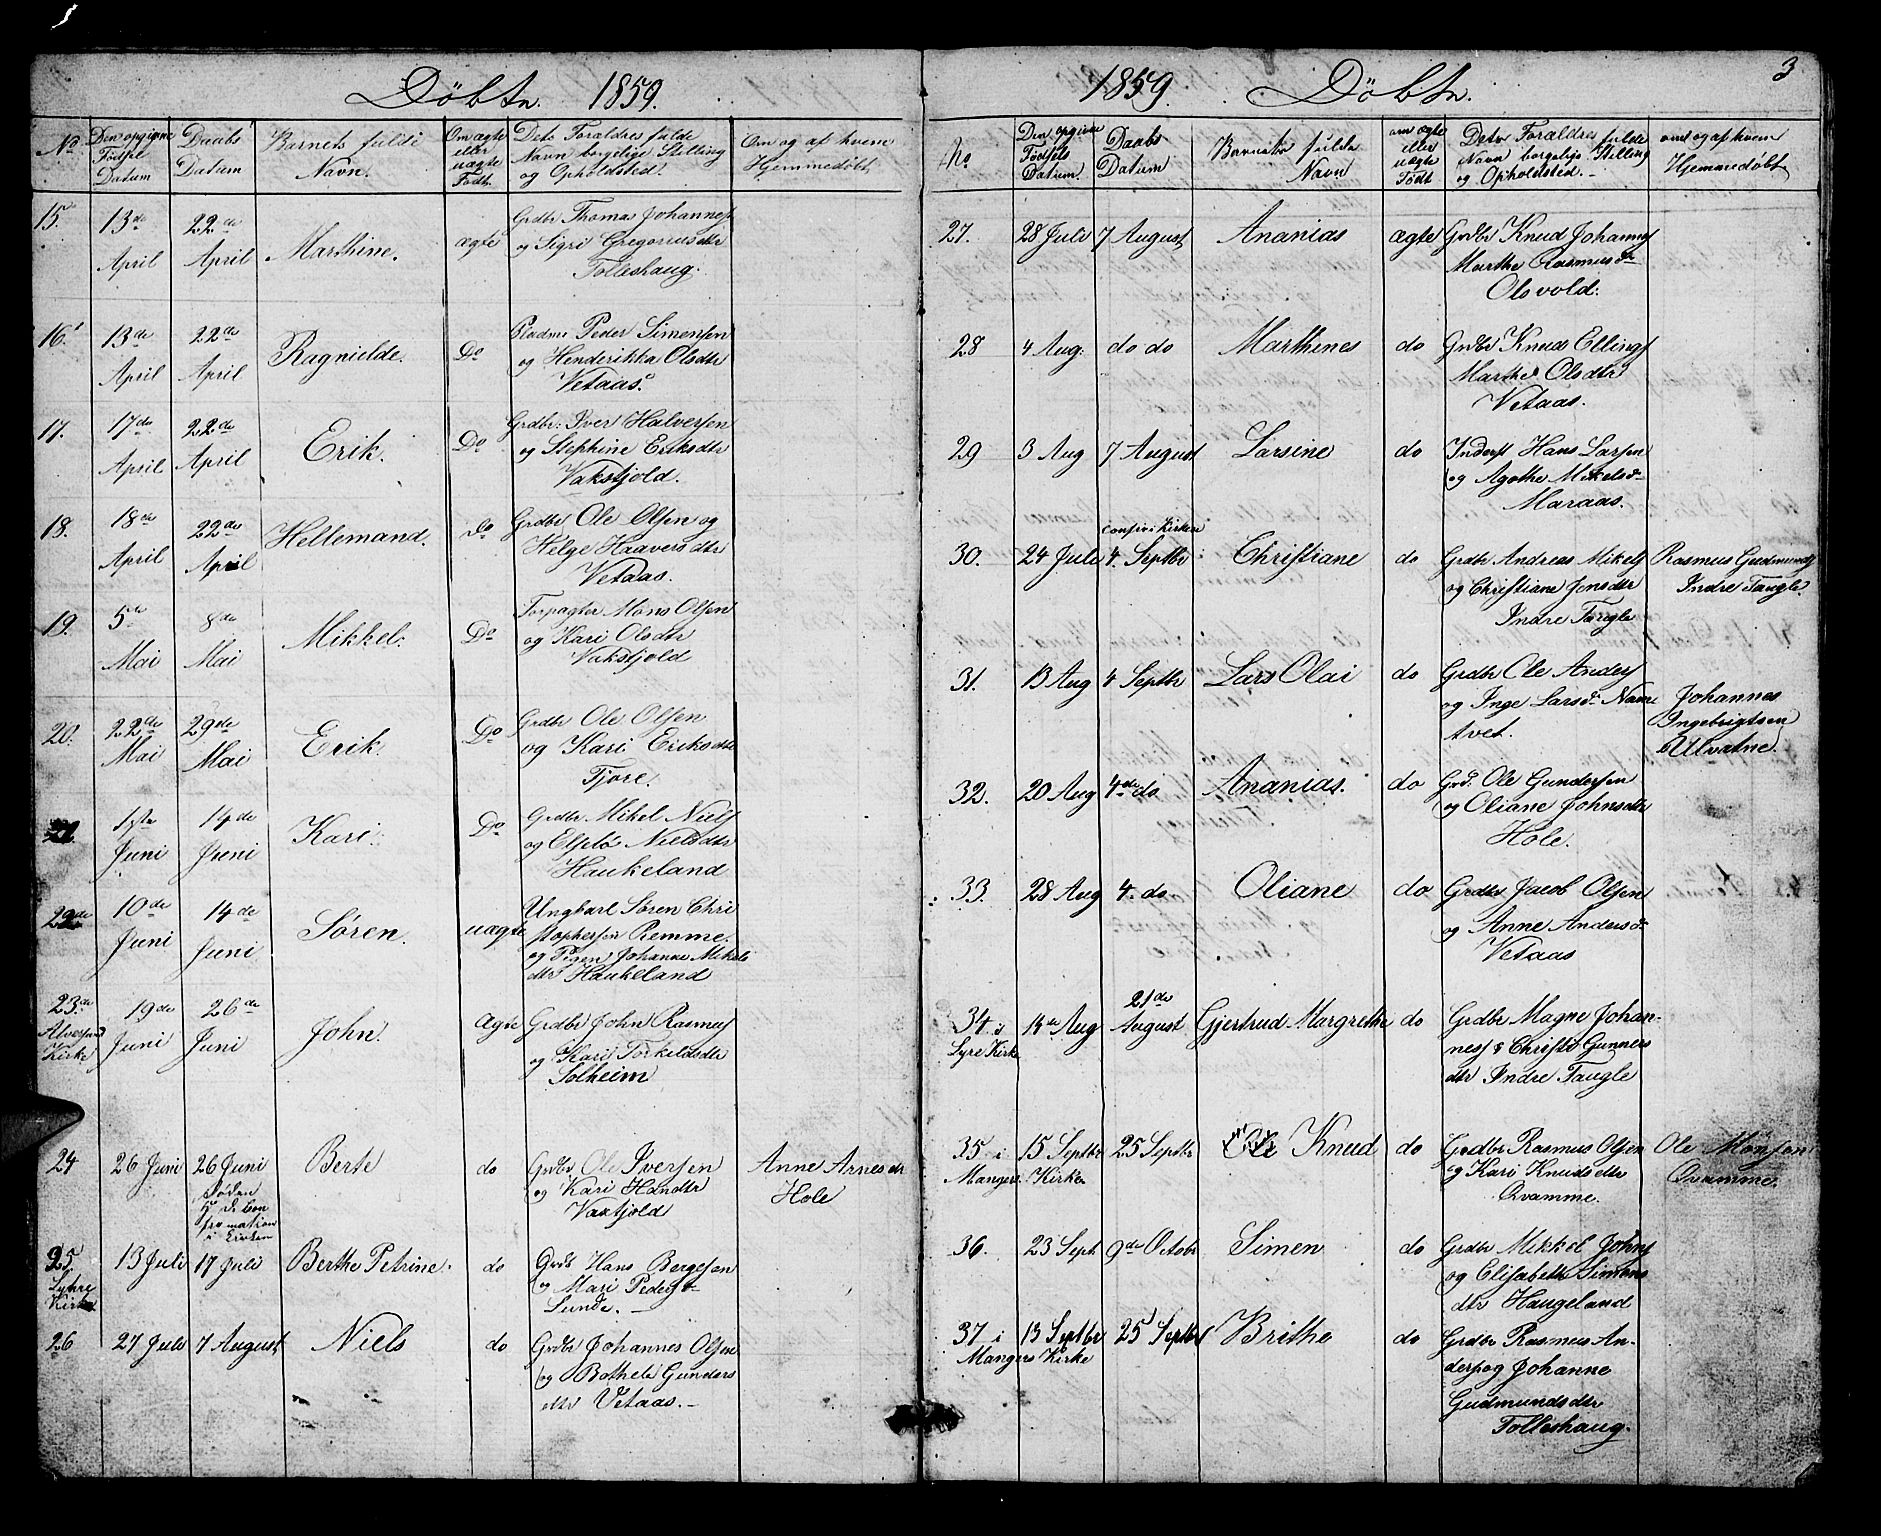 Döbte. 1859.
No
Den opgivne Födsel Datum
Daabs Datum
Barnets fulde Navn.
Om ægte eller uægte Födt.
Dets Forældres fulde Navn borgelige Stilling og Opholdsted.
Om og af hvem Hjemmedöbt
15.
13de April
22de April
Marthine.
ægte
Grdbr Thomas Johannes
og Sigri Gregoriusdtr
Tolleshaug.
16.
13de April
22de April
Ragnilde.
Do
Pladsm Peder Simensen
og Henderikka Olsdtr
Vetaas.
17.
17de April
22de April
Erik.
Do
Grdbr: Iver Halversen
og Stephine Eriksdtr
Vakstjold.
18.
18de April
22de April
Hellemand.
Do
Grdbr Ole Olsen og
Helge Haaversdtr
Vetaas.
19.
5te Mai
8de Mai
Mikkel.
Do
Forpagter Mons Olsen
og Kari Olsdtr
Vakstjold
20.
22de Mai
29de Mai
Erik
Do
Grdbr Ole Olsen
og Kari Eriksdtr
Fjore.
21.
1ste Juni
14de Juni
Kari.
Do
Grdbr Mikel Niels
og Elsebe Nielsdtr
Haukeland
22de
10de Juni
14de Juni
Søren.
uægte
Ungkarl Søren Chri
stophersen Remme.
og Pigen Johanne Mikels
dtr Haukeland
23de
Alversund
Kirke
19de Juni
26de Juni
John.
Ægte
Grdbr John Rasmus
og Kari Torkeldsdtr
Solheim
24
26 Juni
26 Juni
Berte
do
Grdbr Ole Iversen
og Kari Hansdtr
Vaxtjold
Anne Arnesdtr
Hole
25
Syhre
Kirke
13 Juli
17 Juli
Berthe Petrine.
do
Grdb Hans Bergesen
og Mari Peders d
Sunde.
26
27 Juli
7 August
Niels
do
Grdbr Johannes Olsen
og Bothele Gunders
dtr Vetaas.
1859. Döbte.
3
No
Den opgivne Födsels Datum.
Daabs Datum
Barnets fulde Navn
om ægte eller uægte Födt
Dets Forældres fulde Navn borgelige Stilling og Opholdsted.
om og af hvem Hjemmedöbt
27.
28 Juli
7 August
Ananias
ægte
Grdbr Knud Johannes
Marthe Rasmusdr
Olsvold.
28
4 Aug.
do do
Marthines
do
Grdbr Knud Ellings
Marthe Olsdtr
Vetaas.
29
3 Aug
7 August
Larsine
do
Inderst Hans Larsen
og Agothe Mikelsd
Maraas.
30.
24 Juli
confir i Kirken
4. Septbr
Christiane
do
Grdbr Andreas Mikels
og Christiane Jensdtr
Indre Fangle
Rasmus Gudmunds
Indre Taugle.
31.
13 Aug
4 Septbr
Lars Olai
do
Grdbr Ole Anders
og Inge Larsd Nam
tvet.
Johannes
Ingebrigtsen
Ulvatne.
32.
20 Aug
4de do
Ananias.
do
Grd. Ole Gundersen
og Oliane Johnsdtr
Hole.
33.
28 Aug
4. do
Oliane
do
Grdbr Jacob Olsen
og Anne Andersd
Vetaas
34 i
Syre Kirke
14de Aug
21de August
Gjertrud Margrethe
do
Grdbr Magne Johan-
nes & Christi Gunners
dtr Indre Taugle
35 i
Mangers Kirke
15 Septbr
25 Septbr
Ole Knud
do
Grdbr Rasmus Olsen
og Kari Knudsdtr
Qvamme.
Ole Monsen
Qvamme.
36.
23 Sept.
9de Octobr
Simen
do
Grdbr Mikkel Johns
og Elisabeth Simons
dtr Haugeland
37 i
Mangers Kirke
13 Septbr
25 Septbr
Brithe
do
Grdbr Rasmus An-
ders og Johanne
Gudmundsdtr
Tolleshaug.